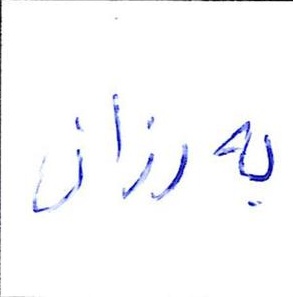 په رزان